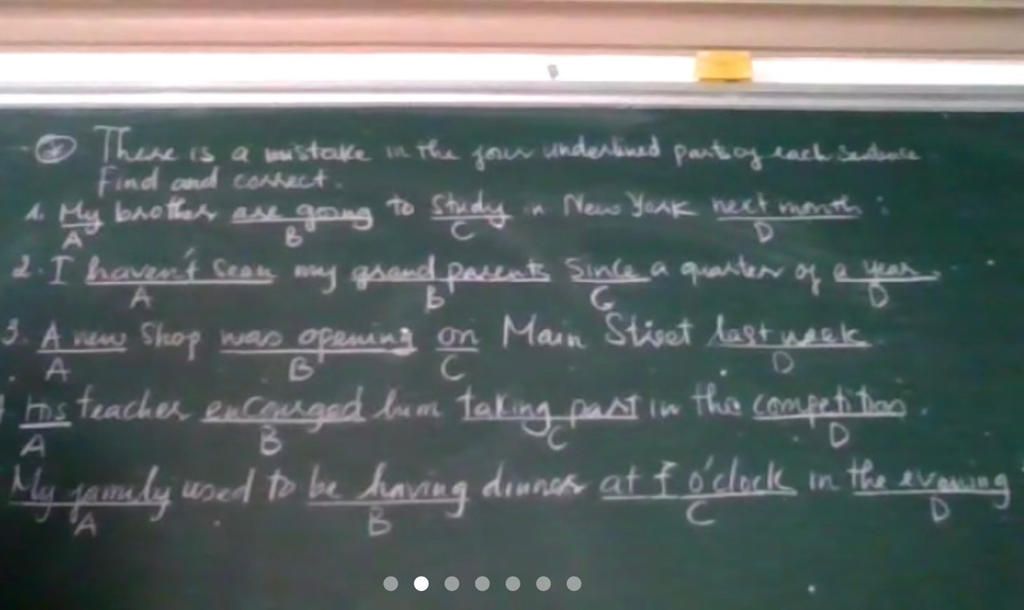 There is a mistake in the four underlined parts of each sentence.
Find and correct.
1. My brother are going to study in New York next month.
A B C D
2. I haven't seen my grand parents since a quarter of a year.
A B C D
3. A new shop was opening on Main Street last week
A B C D
His teacher encourged him taking part in the competition.
A B C D
My family used to be having dinner at 7 o'clock in the evening
A B C D